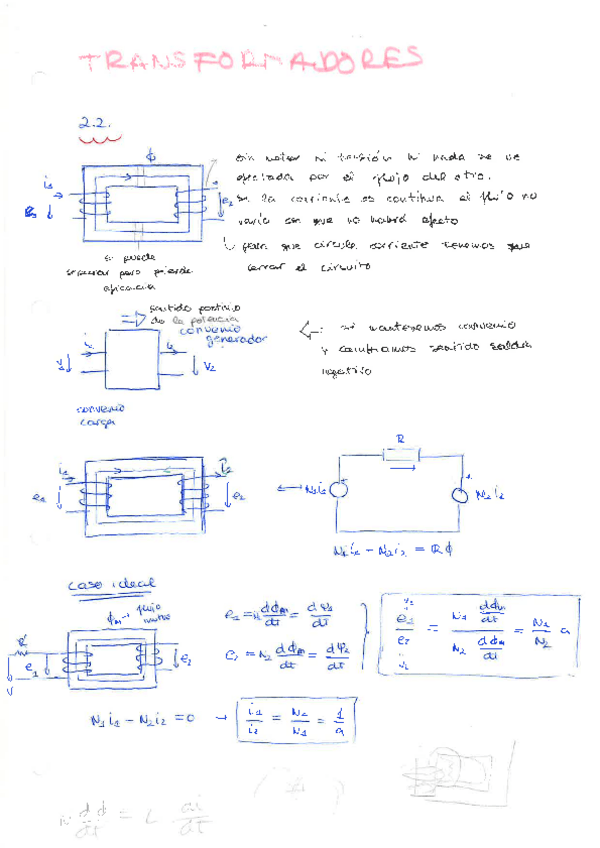 TRANSFORMADORES
2.2.
ϕ
sin haber ni tensión ni nada se ve
i₁
afectada por el flujo del otro.
e₂
si la corriente es continua el flujo no
varía así que no habrá efecto
↳ para que circule corriente tenemos que
cerrar el circuito
se puede
separar pero pierde
eficiencia
sentido positivo
de la potencia
convenio
generador
si mantenemos convenio
y cambiamos sentido saldría
negativo
i₁ i₂
V₁ V₂
convenio
carga
R
i₁ i₂
e₁ e₂
N₁i₁ N₂i₂
N₁i₁ - N₂i₂ = Rϕ
caso ideal
ϕm → flujo
e₁ = N₁ dϕm/dt = dφ₁/dt
e₂ = N₂ dϕm/dt = dφ₂/dt
e₁/e₂ = N₁ dϕm/dt / N₂ dϕm/dt = N₁/N₂ a
R
e₁ e₂
V
N₁i₁ - N₂i₂ = 0 → i₁/i₂ = N₂/N₁ = 1/a
N dϕ/dt = L di/dt